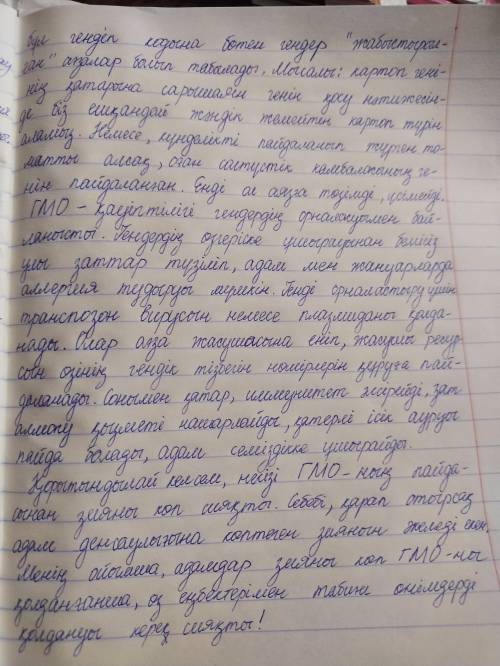 бұл гендік кодына бөтен гендер "жабыстырыл-
ған" ағзалар болып табылады. Мысалы: картоп гені-
нің қатарына сарышаян генін қосу нәтижесін-
де біз ешқандай жәндік жемейтін картоп түрін
аламыз. Немесе, күнделікті пайдаланып жүрген то-
матты алсақ, оған солтүстік камбаласының ге-
нін пайдаланған. Енді ол аязға төзімді, үсімейді.
ГМО-қауіптілігі гендердің орналасуымен бай-
ланысты. Гендердің өзгеріске ұшырауынан белгісіз
улы заттар түзіліп, адам мен жануарларда
аллергия тудыруы мүмкін. Генді орналастыру үшін
транспозон вирусын немесе плазмиданы қолда-
нады. Олар ағза жасушасына еніп, жасушы ресур-
сын өзінің гендік тізбегін көшірмелерін құруға пай-
даланады. Сонымен қатар, иммунитет әлсірейді, зат
алмасу қызметі нашарлайды, қатерлі ісік ауруы
пайда болады, адам семіздікке ұшырайды.
Қорытындылай келсем, негізі ГМО-ның пайда-
сынан зияны көп сияқты. Себебі, қарап отырсақ
адам денсаулығына көптеген зиянын әкеледі екен.
Менің ойымша, адамдар зияны көп ГМО-ны
қолданғанша, өз еңбектерімен табиғи өнімдерді
қолдануы керек сияқты!